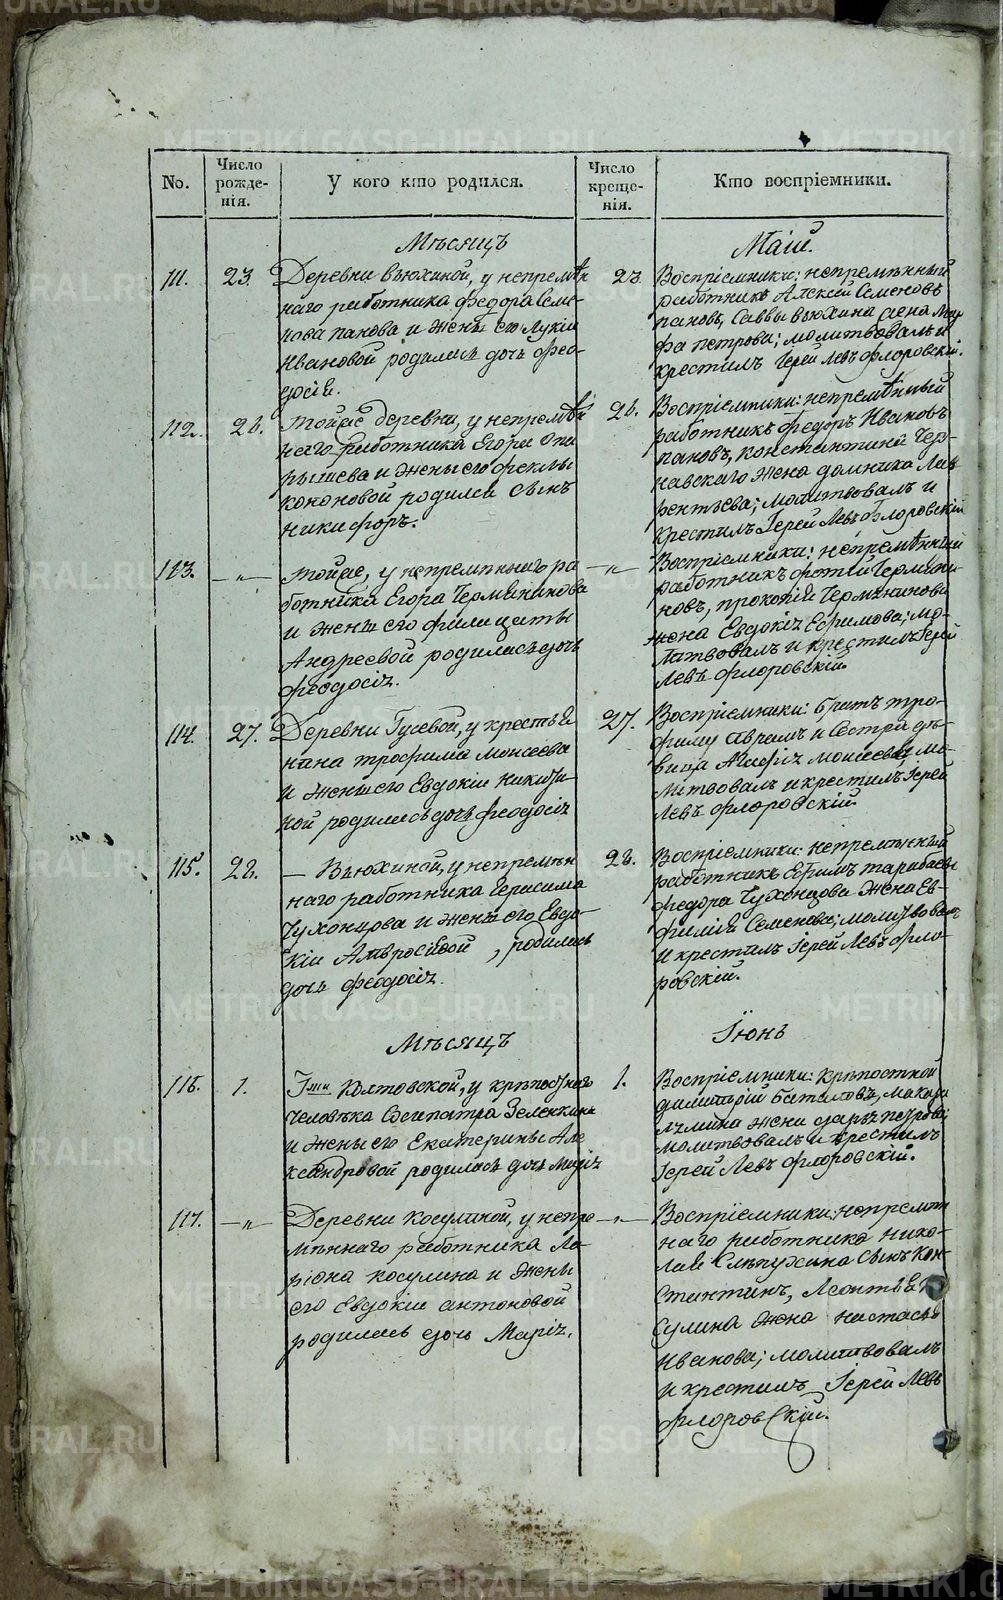 No.
Число рожде-
нія.
У кого кто родился.
Число креще-
нія.
Кто воспріемники.
Мѣсяцъ
Маій.
111.
23.
Деревни Вьюхиной, у непремѣн
наго работника Федора Семе
нова Панова и жены его Лукіи
Ивановой родилась дочь Фео-
досія.
23.
Воспріемники: непремѣнный
работникъ Алексѣй Семеновъ
Пановъ, Саввы Вьюхина жена Мар
фа Петрова; молитвовалъ и
крестилъ Іерей Левъ Флоровскій.
112.
26.
Тойже деревни, у непремѣн
наго работника Егора
и жены его Феклы
Кононовой родился сынъ
Никифоръ.
26.
Воспріемники: непремѣнный
работникъ Федоръ Ивановъ
Пановъ, Константина Чер-
навскаго жена Домника Лав
рентьева; молитвовалъ и
крестилъ Іерей Левъ Флоровскій
113.
—"—
Тойже, у непремѣннаго ра
ботника Егора Чермяникова
и жены его Филицаты
Андреевой родилась дочь
Феодосія.
—"—
Воспріемники: непремѣнный
работникъ Фотій Чермяни-
новъ, Прокопія Чермянинова
жена Евдокія Ефимова; мо-
литвовалъ и крестилъ Іерей
Левъ Флоровскій.
114.
27.
Деревни Гусевой, у крестья
нина Трофима Моисеева
и жены его Евдокіи Никити
ной родилась дочь Феодосія
27.
Воспріемники: братъ Тро-
фиму Аврамъ и сестра дѣ-
вица Агафія Моисеевы, мо-
литвовалъ и крестилъ Іерей
Левъ Флоровскій.
115.
28.
— Вьюхиной, у непремѣн
наго работника Герасима
Чухонцова и жены его Евдо-
кіи Амвросіевой, родилась
дочь Феодосія.
28.
Воспріемники: непремѣнный
работникъ Ефимъ Тарабаевъ
Федора Чухонцова жена Ев-
фимія Семенова; молитвовалъ
и крестилъ Іерей Левъ Фло-
ровскій.
Мѣсяцъ
Іюнь
116.
1.
Гжи Колтовской, у крѣпостнаго
человѣка Сосипатра Зеленкина
и жены его Екатерины Але
ксандровой родилась дочь Марія
1.
Воспріемники: крѣпостной
Димитрій Баталовъ, Макара
жена Дарья Петрова;
молитвовалъ и крестилъ
Іерей Левъ Флоровскій.
117.
—"—
Деревни Косулиной, у непре
мѣннаго работника Ла-
ріона Косулина и жены
его Евдокіи Антоновой
родилась дочь Марія.
—"—
Воспріемники: непремѣн
наго работника Нико-
лая Слѣпухина сынъ Кон-
стантинъ, Леонтья Ко
сулина жена Настасья
Иванова; молитвовалъ
и крестилъ Іерей Левъ
Флоровскій.